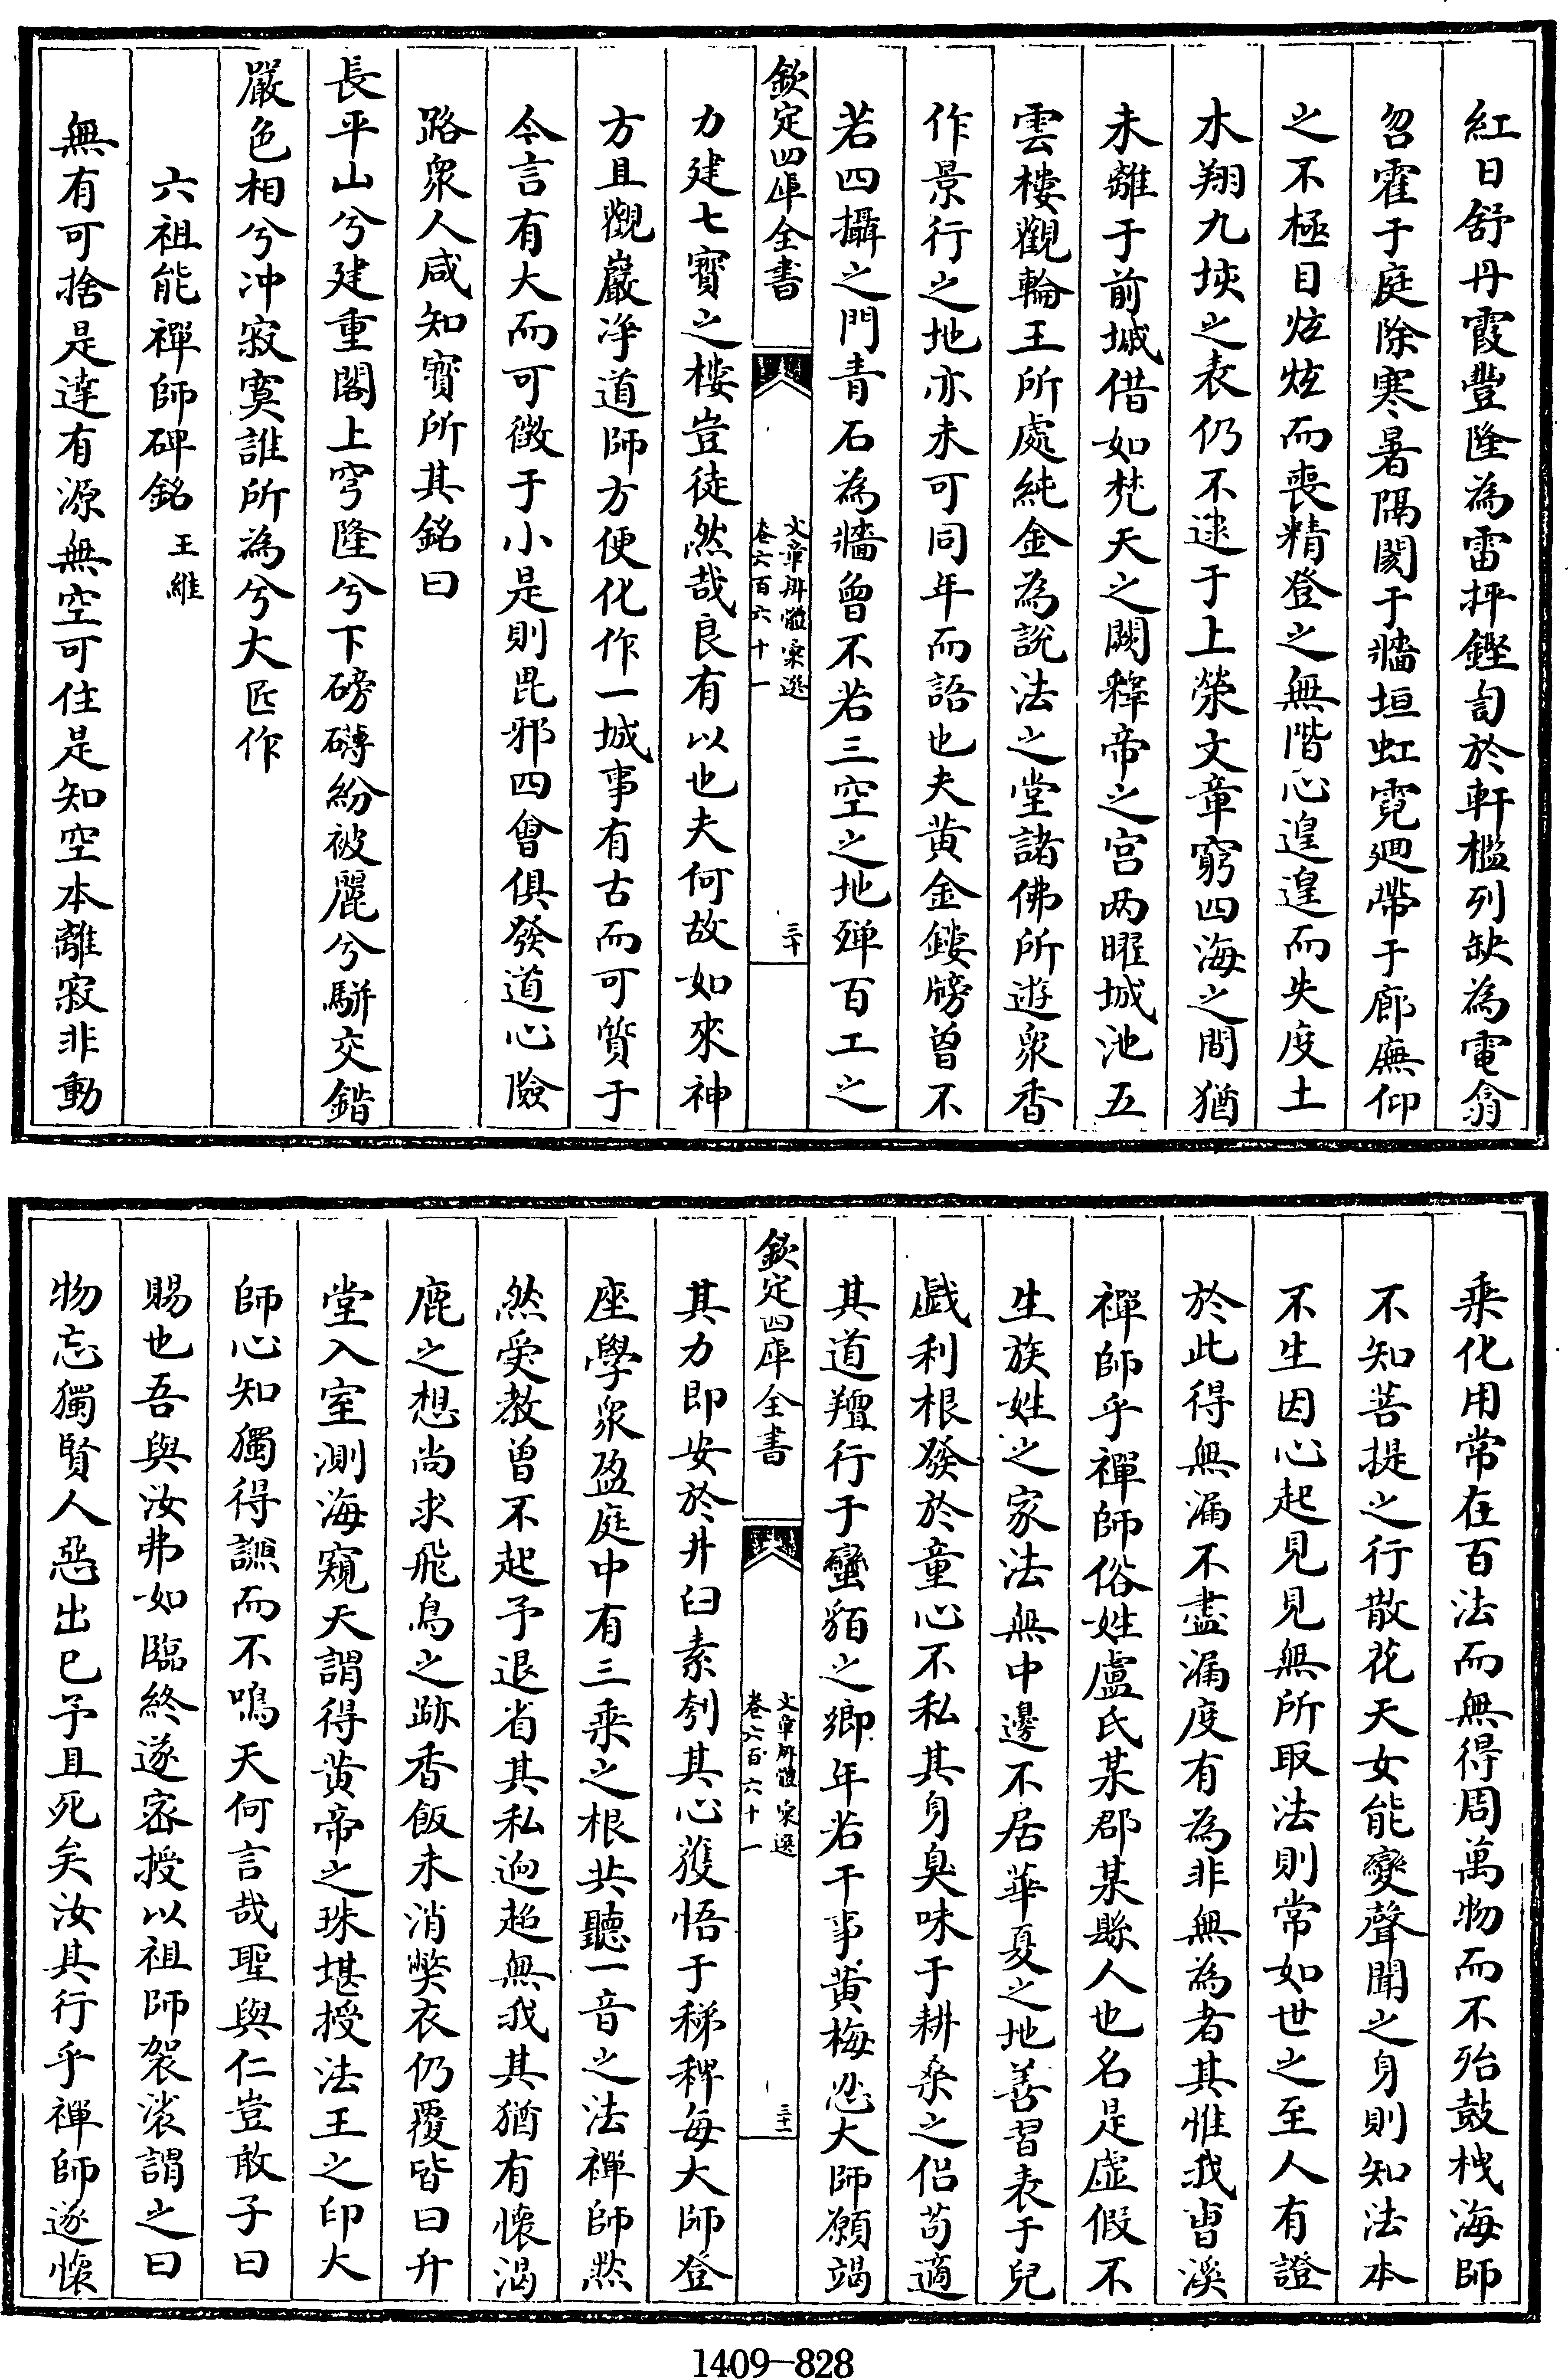 紅日舒丹霞豐隆為雷抨鏗訇於軒檻列缺為電翕
忽霍于庭除寒暑隔閡于牆垣虹霓廻帶于廊廡仰
之不極目炫炫而喪精登之無階心遑遑而失度土
木翔九垓之表仍不逮于上榮文章窮四海之間猶
未離于前墄借如梵天之闕釋帝之宫两曜城池五
雲樓觀輪王所處純金為說法之堂諸佛所遊衆香
作景行之地亦未可同年而語也夫黄金鏤牓曾不
若四攝之門青石為牆曾不若三空之地殫百工之
欽定四庫全書
文章辨體彚選
卷六百六十一
三十
力建七寳之樓豈徒然哉良有以也夫何故如來神
方且觀嚴净道師方便化作一城事有古而可質于
今言有大而可徵于小是則毘邪四會俱發道心險
路衆人咸知寳所其銘曰
長平山兮建重閣上穹隆兮下磅礴紛被麗兮駢交錯
嚴色相兮冲寂寞誰所為兮大匠作
六祖能禪師碑銘 王維
無有可捨是達有源無空可住是知空本離寂非動
乘化用常在百法而無得周萬物而不殆鼓枻海師
不知菩提之行散花天女能變聲聞之身則知法本
不生因心起見見無所取法則常如世之至人有證
於此得無漏不盡漏度有為非無為者其惟我曹溪
禪師乎禪師俗姓盧氏某郡某縣人也名是虚假不
生族姓之家法無中邊不居華夏之地善習表于兒
戯利根發於童心不私其身臭味于耕桑之侣苟適
其道羶行于蠻貊之鄉年若干事黄梅忍大師願竭
欽定四庫全書
文章辨體彚選
卷六百六十一
三十一
其力即安於井臼素刳其心獲悟于稊稗每大師登
座學衆盈庭中有三乘之根共聽一音之法禪師黙
然受教曾不起予退省其私逈超無我其猶有懷渴
鹿之想尚求飛鳥之跡香飯未消弊衣仍覆皆曰升
堂入室測海窺天謂得黄帝之珠堪授法王之印大
師心知獨得謙而不鳴天何言哉聖與仁豈敢子曰
賜也吾與汝弗如臨終遂宻授以祖師袈裟謂之曰
物忘獨賢人惡出已予且死矣汝其行乎禪師遂懷
1409—828